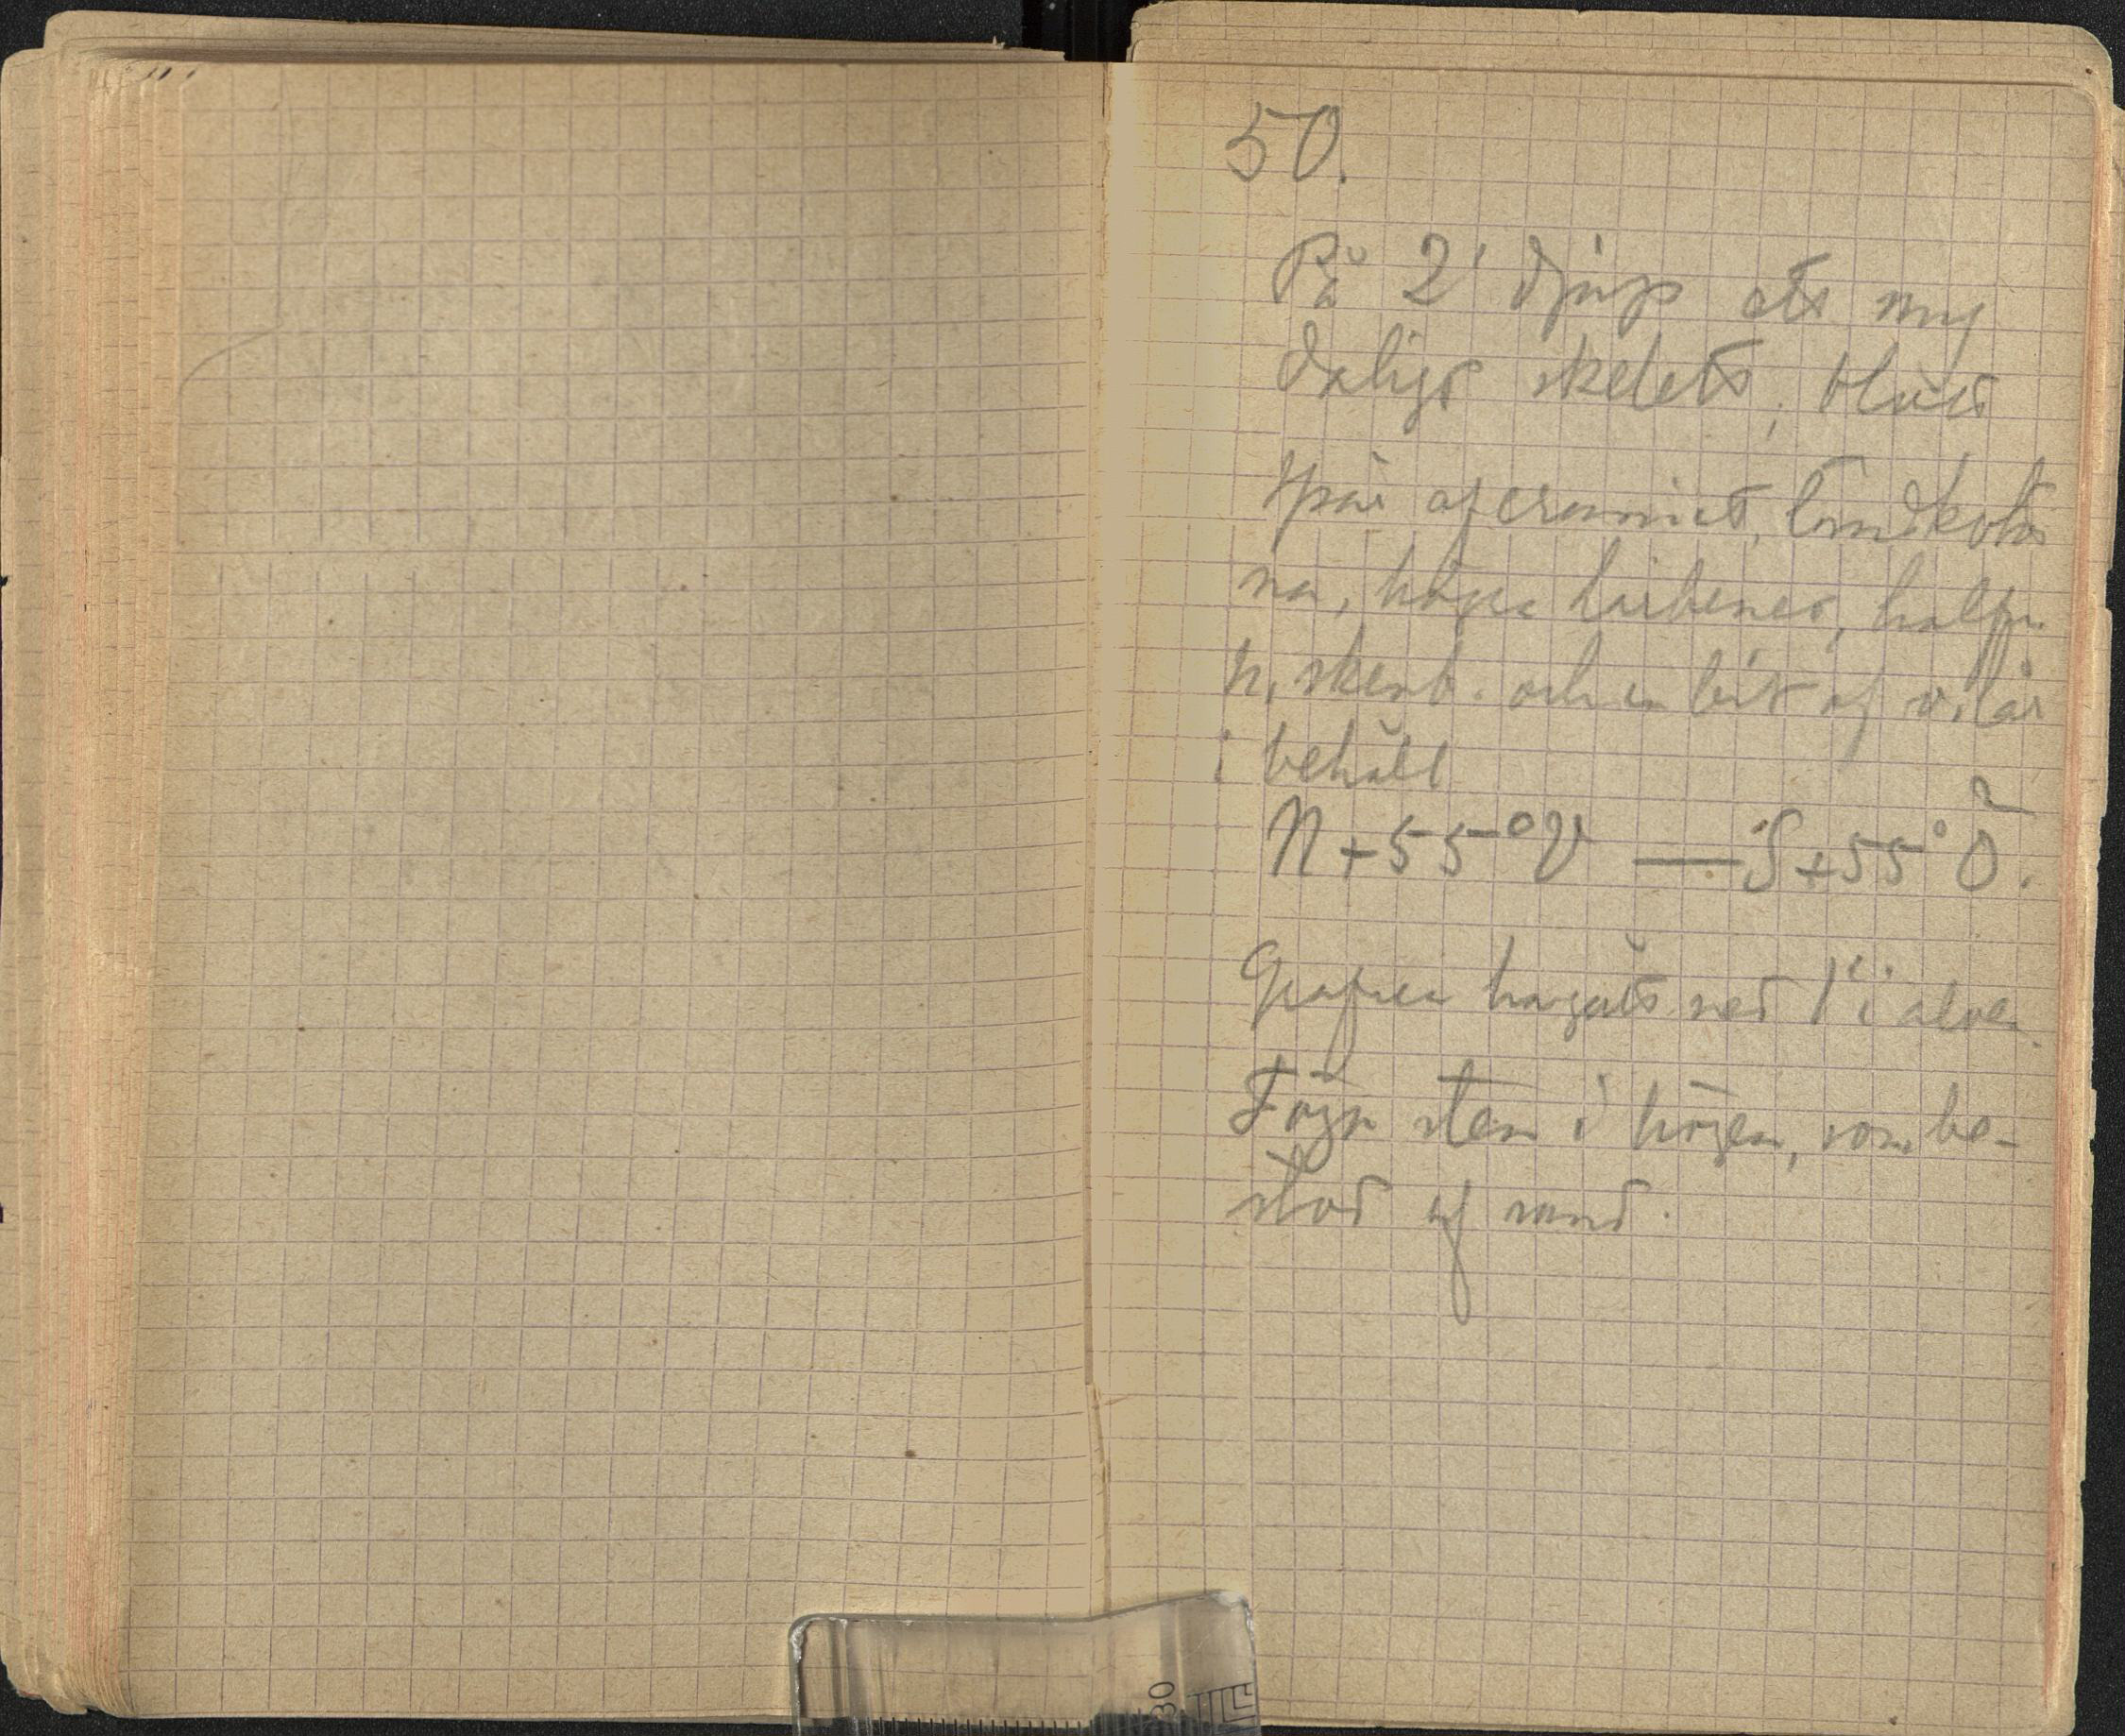 50.
På 2' djup ett my
daligt skelett, blott
spår af craniet, Landkotor
na, högra lårbenet, halfva
h. skenb. och en bit af v. lår
i behåll
N+55°V — S+55°Ö.
Grafven har gått ned 1' i alven.
Några sten i högen, som be-
stod af sand.
30